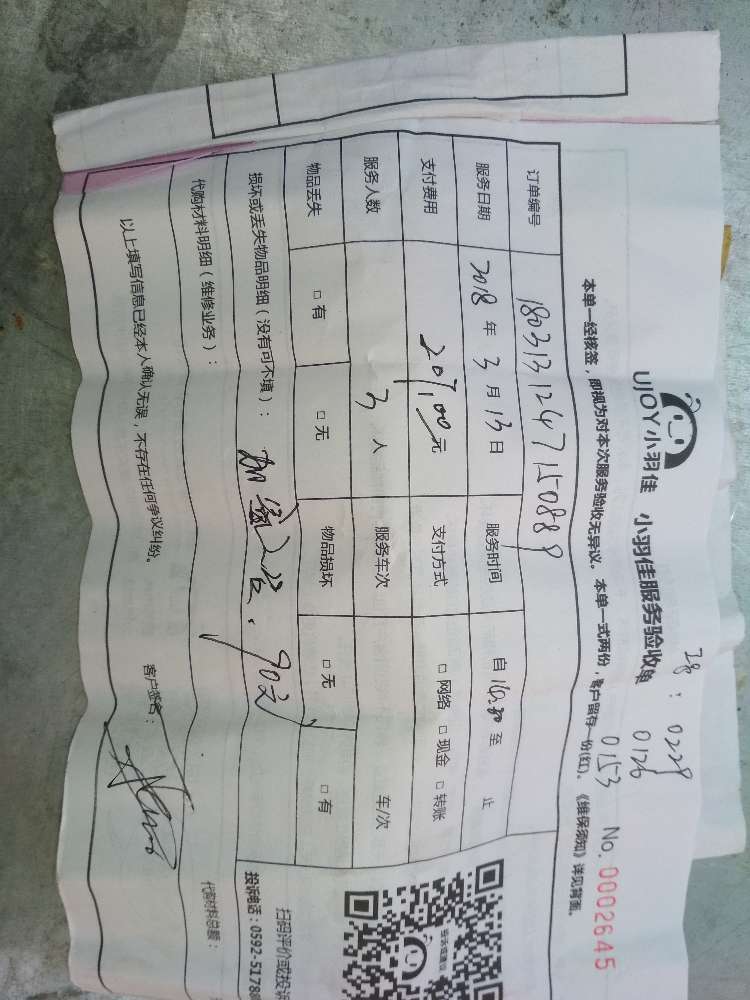 UJOY小羽佳 小羽佳服务验收单
工号：0229
0126
0153
No. 0002645
本单一经核签，即视为对本次服务验收无异议。本单一式两份，客户留存一份(红)。《维保须知》详见背面。
订单编号 1803131247150889
服务日期 2018年3月13日 服务时间 自14:30至 止
支付费用 元 支付方式 □网络 □现金 □转账
服务人数 3人 服务车次 车/次
物品丢失 □有 □无 物品损坏 □无 □有
损坏或丢失物品明细（没有可不填）： 90元
代购材料明细（维修业务）： 代购材料总额：
以上填写信息已经本人确认无误，不存在任何争议纠纷。 客户签名：
扫码评价或投诉
投诉电话：0592-51788